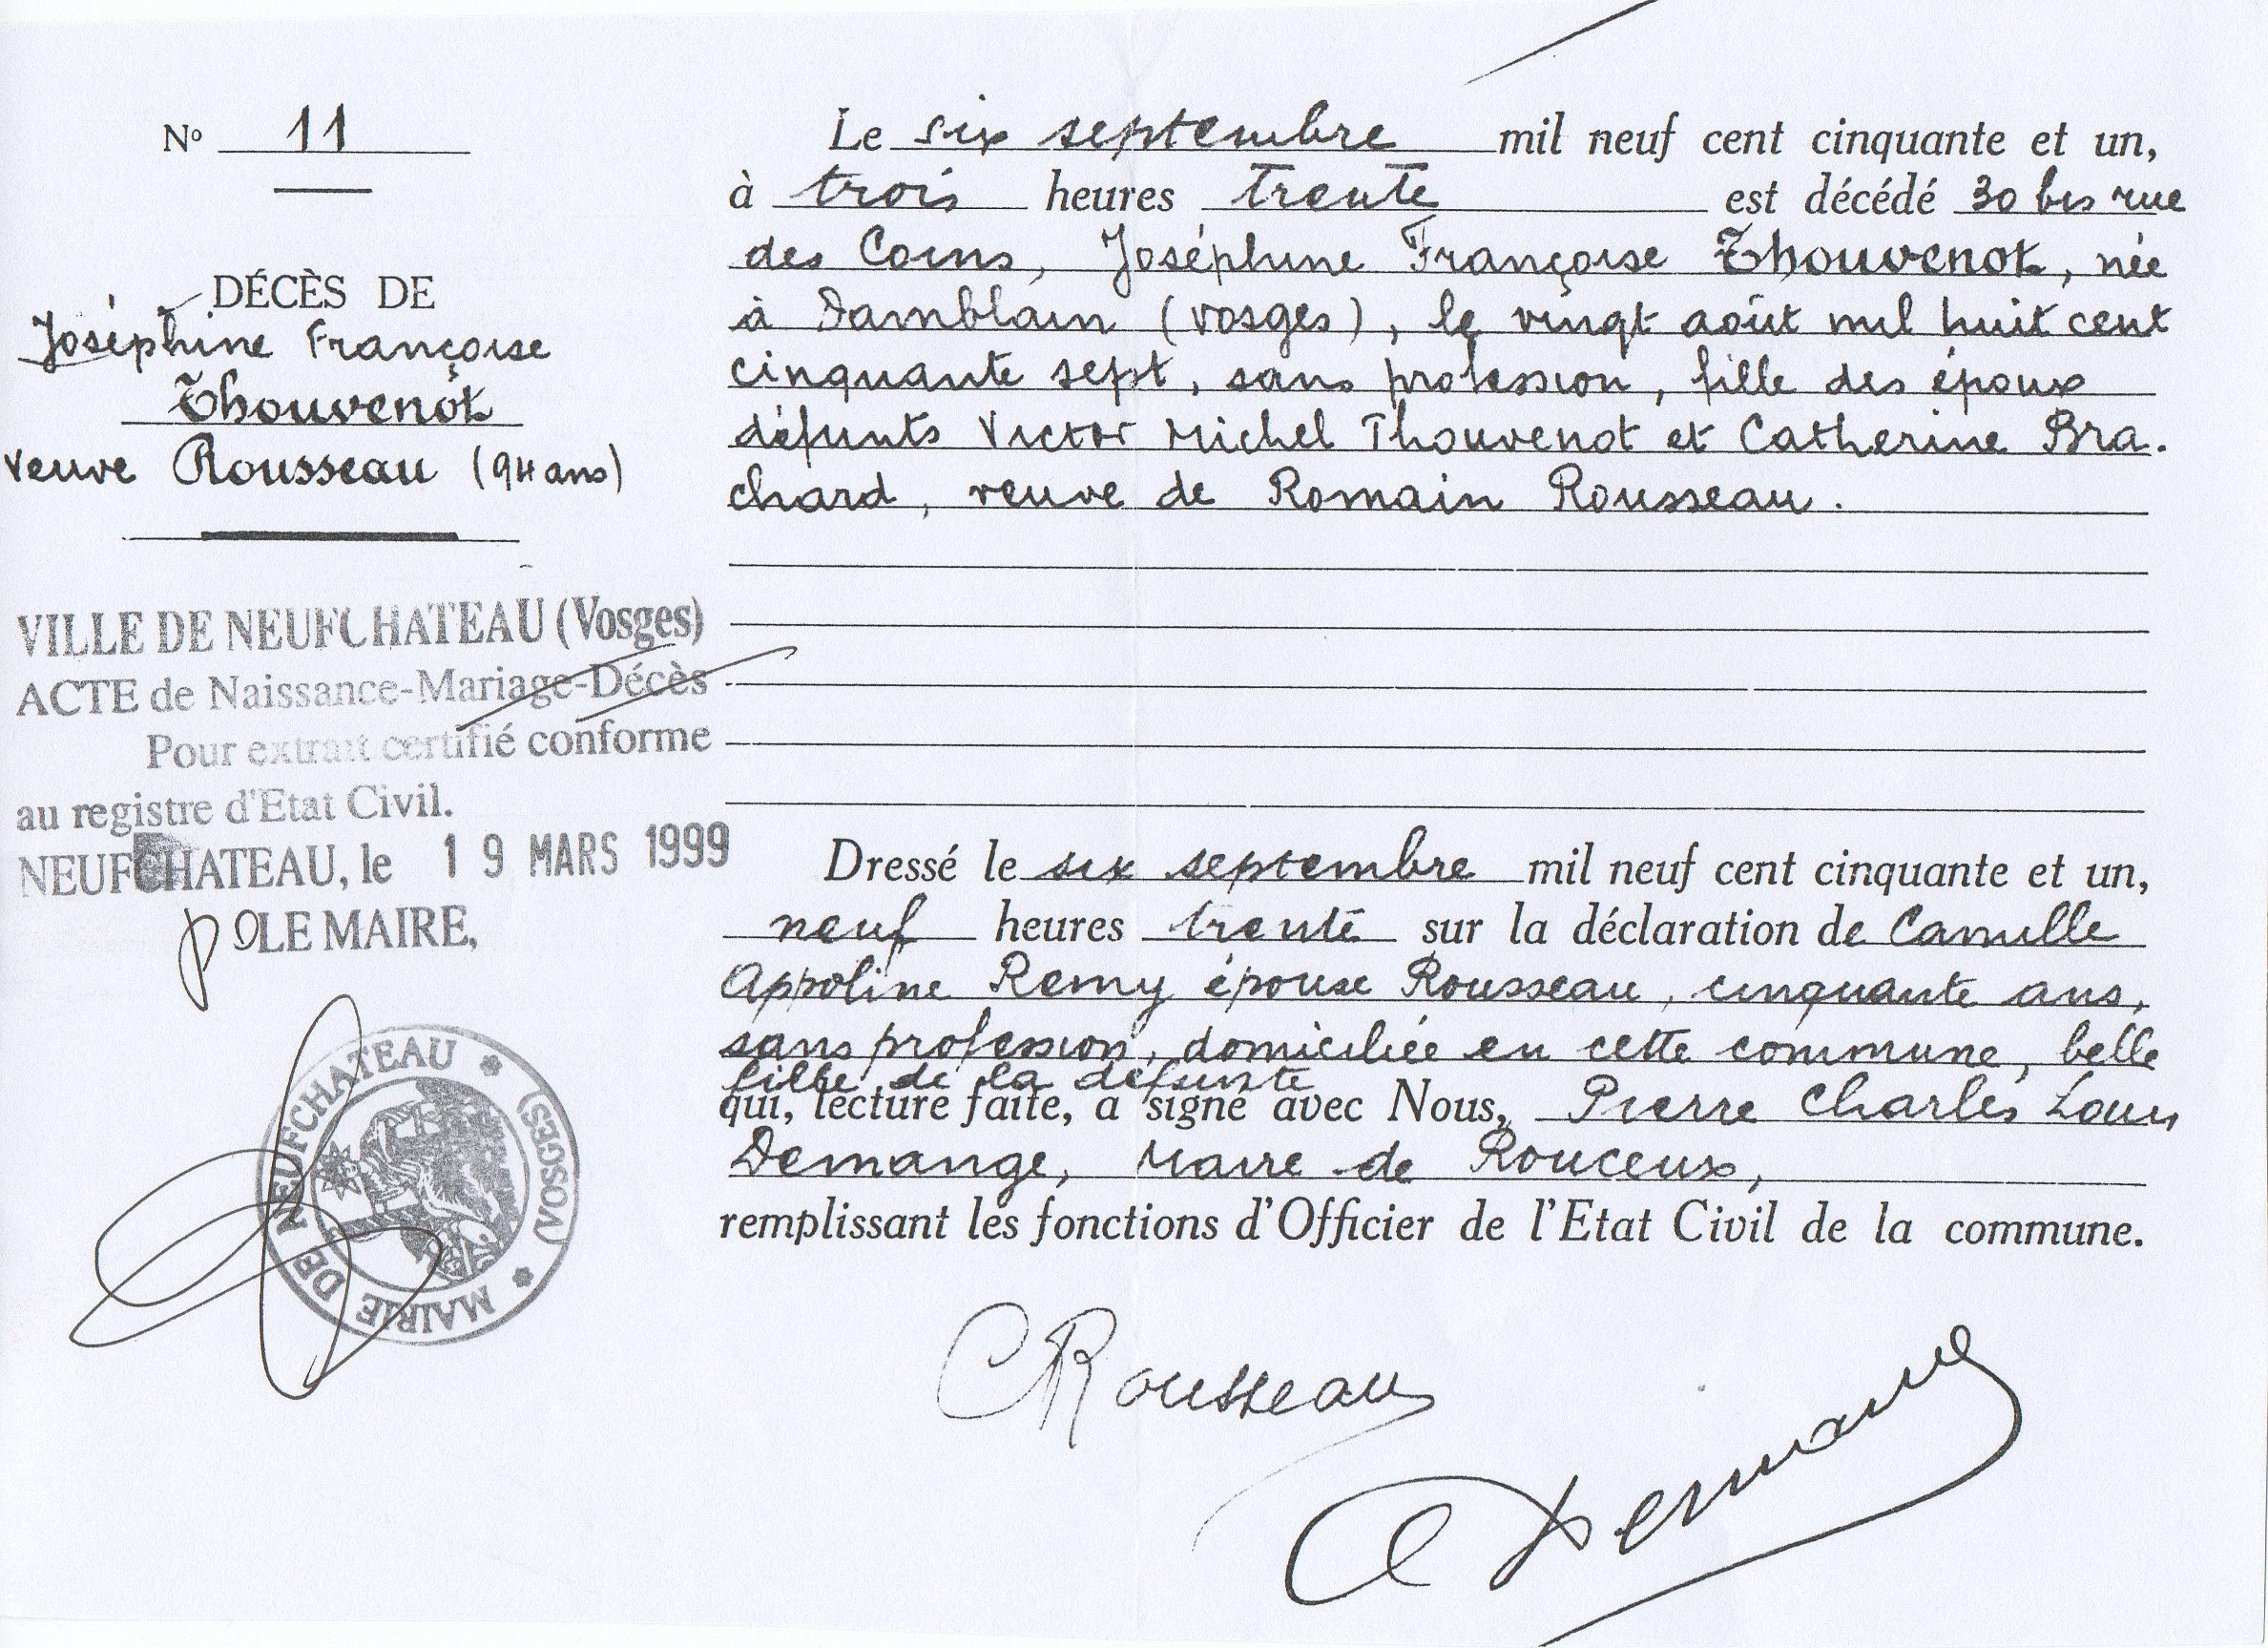 Nº 11
DÉCÈS DE
Joséphine Françoise
Thouvenot
veuve Rousseau (94 ans)
VILLE DE NEUFCHATEAU (Vosges)
ACTE de Naissance-Mariage-Décès
Pour extrait certifié conforme
au registre d'Etat Civil.
NEUFCHATEAU, le 19 MARS 1999
P/ LE MAIRE,
MAIRIE DE NEUFCHATEAU * (VOSGES) *
Le six septembre mil neuf cent cinquante et un,
à trois heures trente est décédé 30 bis rue
des Coins, Joséphine Françoise Thouvenot, née
à Damblain (Vosges), le vingt août mil huit cent
cinquante sept, sans profession, fille des époux
défunts Victor Michel Thouvenot et Catherine Bra-
chard, veuve de Romain Rousseau.
Dressé le six septembre mil neuf cent cinquante et un,
neuf heures trente sur la déclaration de Camille
Appoline Remy épouse Rousseau, cinquante ans,
sans profession, domiciliée en cette commune, belle
fille de la défunte
qui, lecture faite, a signé avec Nous, Pierre Charles Louis
Demange, Maire de Rouceux,
remplissant les fonctions d'Officier de l'Etat Civil de la commune.
CRousseau
Demange